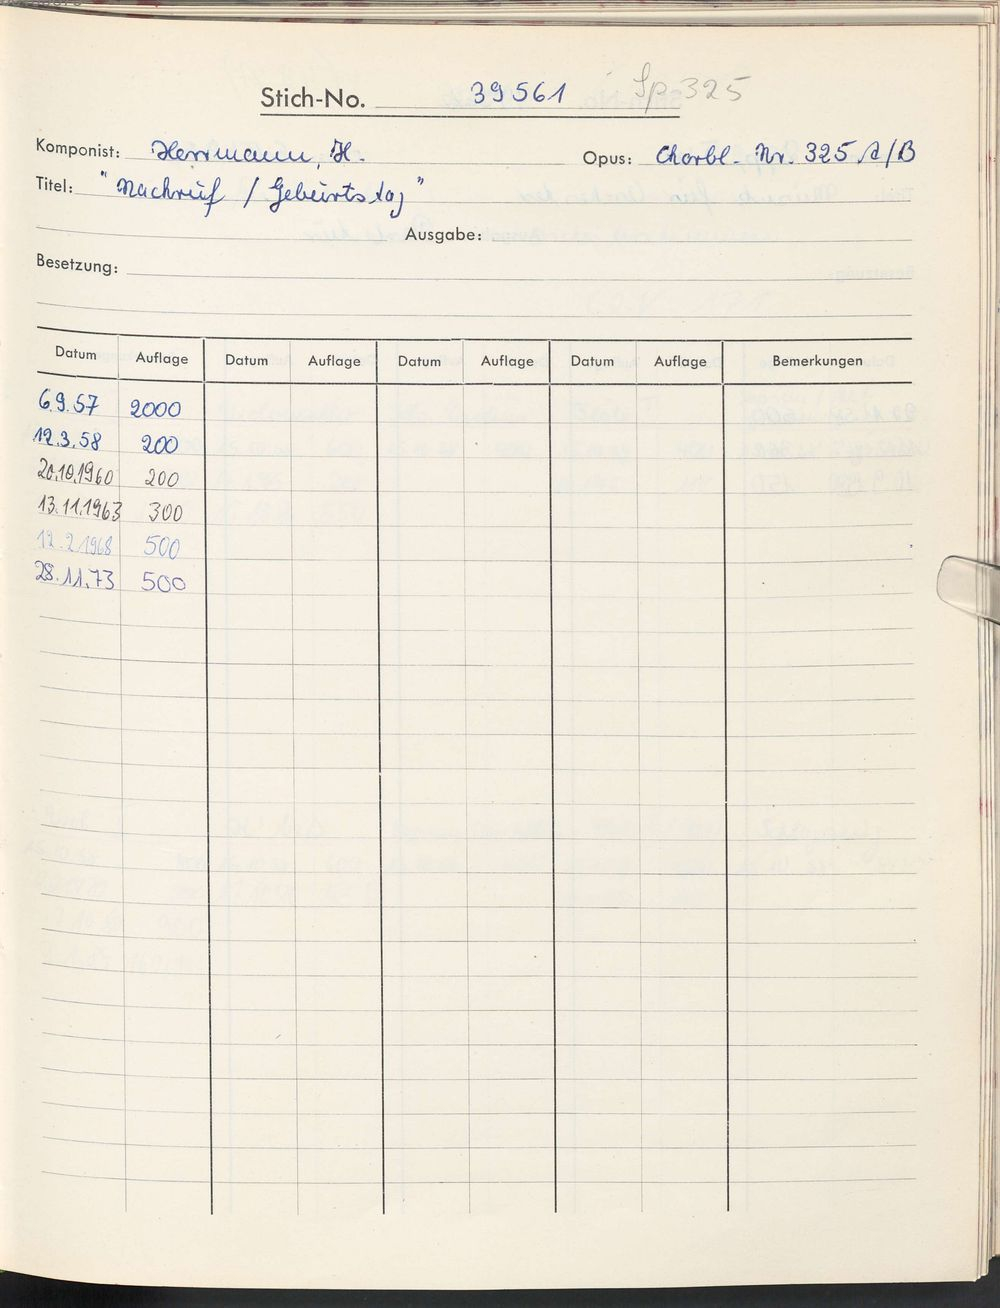 Stich-No. 39561 Sp 325
Komponist: Herrmann, H. Opus: Chorbl. Nr. 325 A/B
Titel: "Nachruf / Geburtstag"
Ausgabe:
Besetzung:
Datum Auflage Datum Auflage Datum Auflage Datum Auflage Bemerkungen
6.9.57 2000
12.3.58 200
20.10.1960 200
13.11.1963 300
12.2.1968 500
28.11.73 500